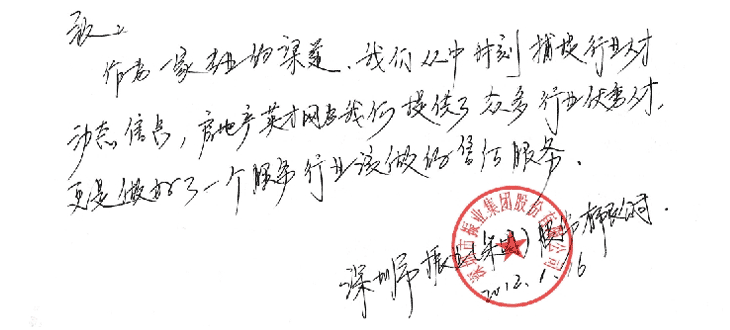 作为一家专业的渠道、我们从中时刻捕捉行业人才
动态信息，房地产英才网为我们提供了众多行业优秀人才，
更是做好了一个服务行业该做的售后服务．
深圳市振业(集团)股份有限公司．
深圳市振业集团股份有限公司
2012.1.16